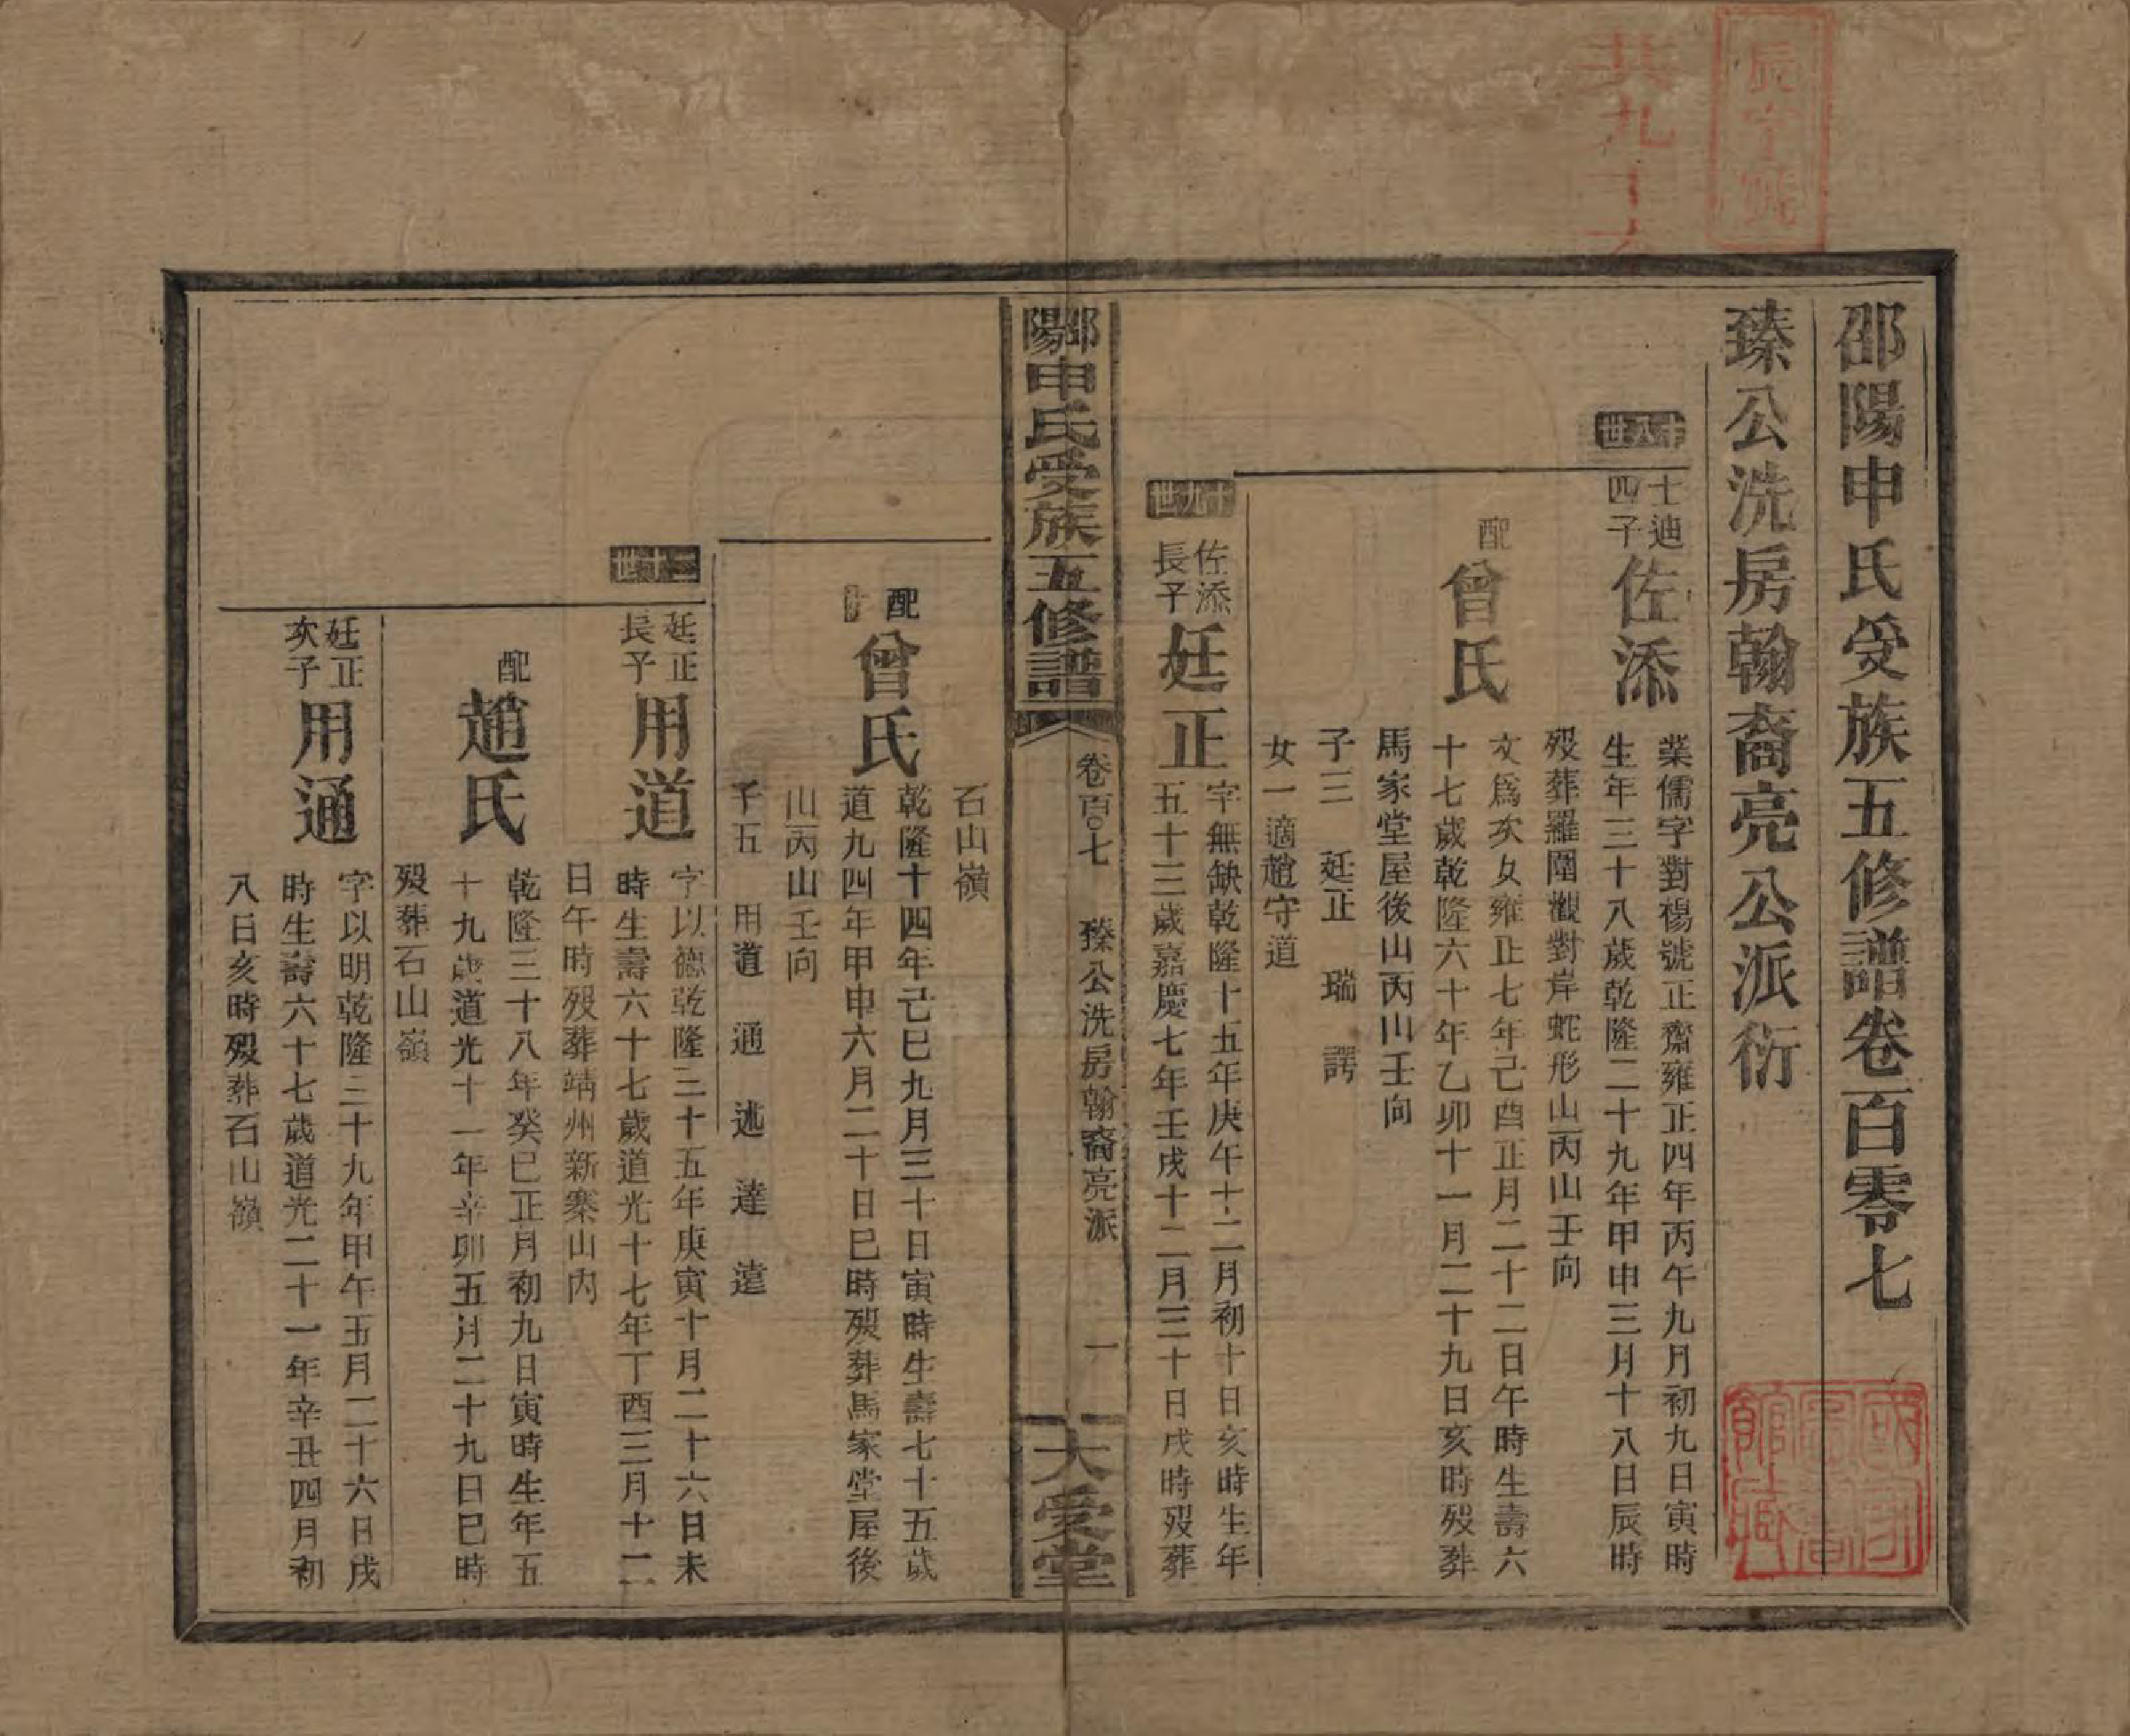 辰字號
共九丁
邵陽申氏受族五修譜卷百零七
臻公洗房翰裔亮公派衍
十八世
士迪四子
佐添
業儒字對楊號正齋雍正四年丙午九月初九日寅時
生年三十八歲乾隆二十九年甲申三月十八日辰時
歿葬羅圍觀對岸蛇形山丙山壬向
配
曾氏
文爲次女雍正七年己酉正月二十二日午時生壽六
十七歲乾隆六十年乙卯十一月二十九日亥時歿葬
馬家堂屋後山丙山壬向
子三 廷正 瑞 諤
女一適趙守道
十九世
佐添長子
廷正
字無缺乾隆十五年庚午十二月初十日亥時生年
五十三歲嘉慶七年壬戌十二月三十日戌時歿葬
邵陽申氏受族五修譜
卷百〇七 臻公洗房翰裔亮派 一
大受堂
石山嶺
配
曾氏
乾隆十四年己巳九月三十日寅時生壽七十五歲
道光四年甲申六月二十日巳時歿葬馬家堂屋後
山丙山壬向
子五 用道 通 述 達 遠
二十世
廷正長子
用道
字以德乾隆三十五年庚寅十月二十六日未
時生壽六十七歲道光十七年丁酉三月十二
日午時歿葬靖州新寨山內
配
趙氏
乾隆三十八年癸巳正月初九日寅時生年五
十九歲道光十一年辛卯五月二十九日巳時
歿葬石山嶺
廷正次子
用通
字以明乾隆三十九年甲午五月二十六日戌
時生壽六十七歲道光二十一年辛丑四月初
八日亥時歿葬石山嶺
國家圖書館藏